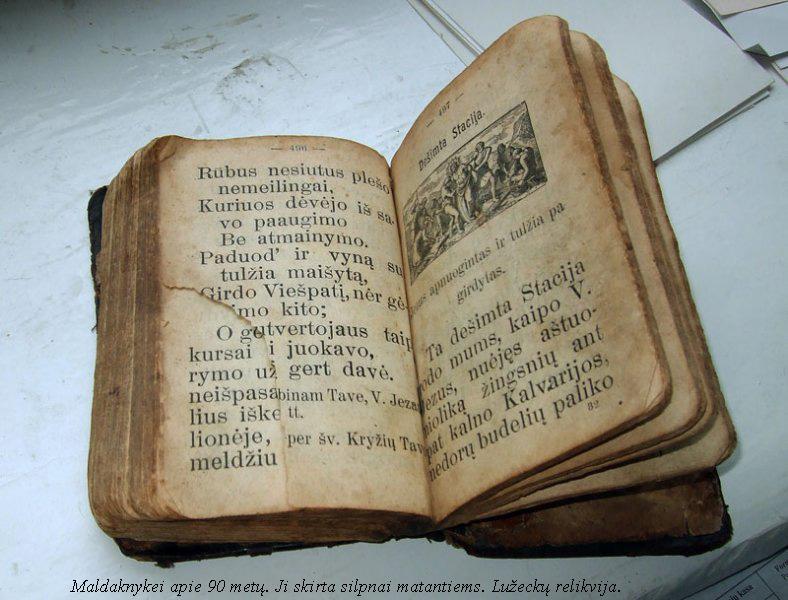 — 496 —
Rūbus nesiutus plešo
nemeilingai,
Kuriuos dėvėjo iš sa-
vo paaugimo
Be atmainymo.
Paduod' ir vyną su
tulžia maišytą,
Girdo Viešpatį, nėr gė-
imo kito;
O gutvertojaus taip
kursai i juokavo,
rymo už gert davė.
neišpasa binam Tave, V. Jeza
lius iške tt.
lionėje, per šv. Kryžių Tav
meldžiu
— 497 —
Dešimta Stacija.
apnuogintas ir tulžia pa-
girdytas.
Ta dešimta Stacija
rodo mums, kaipo V.
Jezus, nuėjęs aštuo-
nioliką žingsnių ant
pat kalno Kalvarijos,
nedorų budelių paliko
32
Maldaknykei apie 90 metų. Ji skirta silpnai matantiems. Lužeckų relikvija.